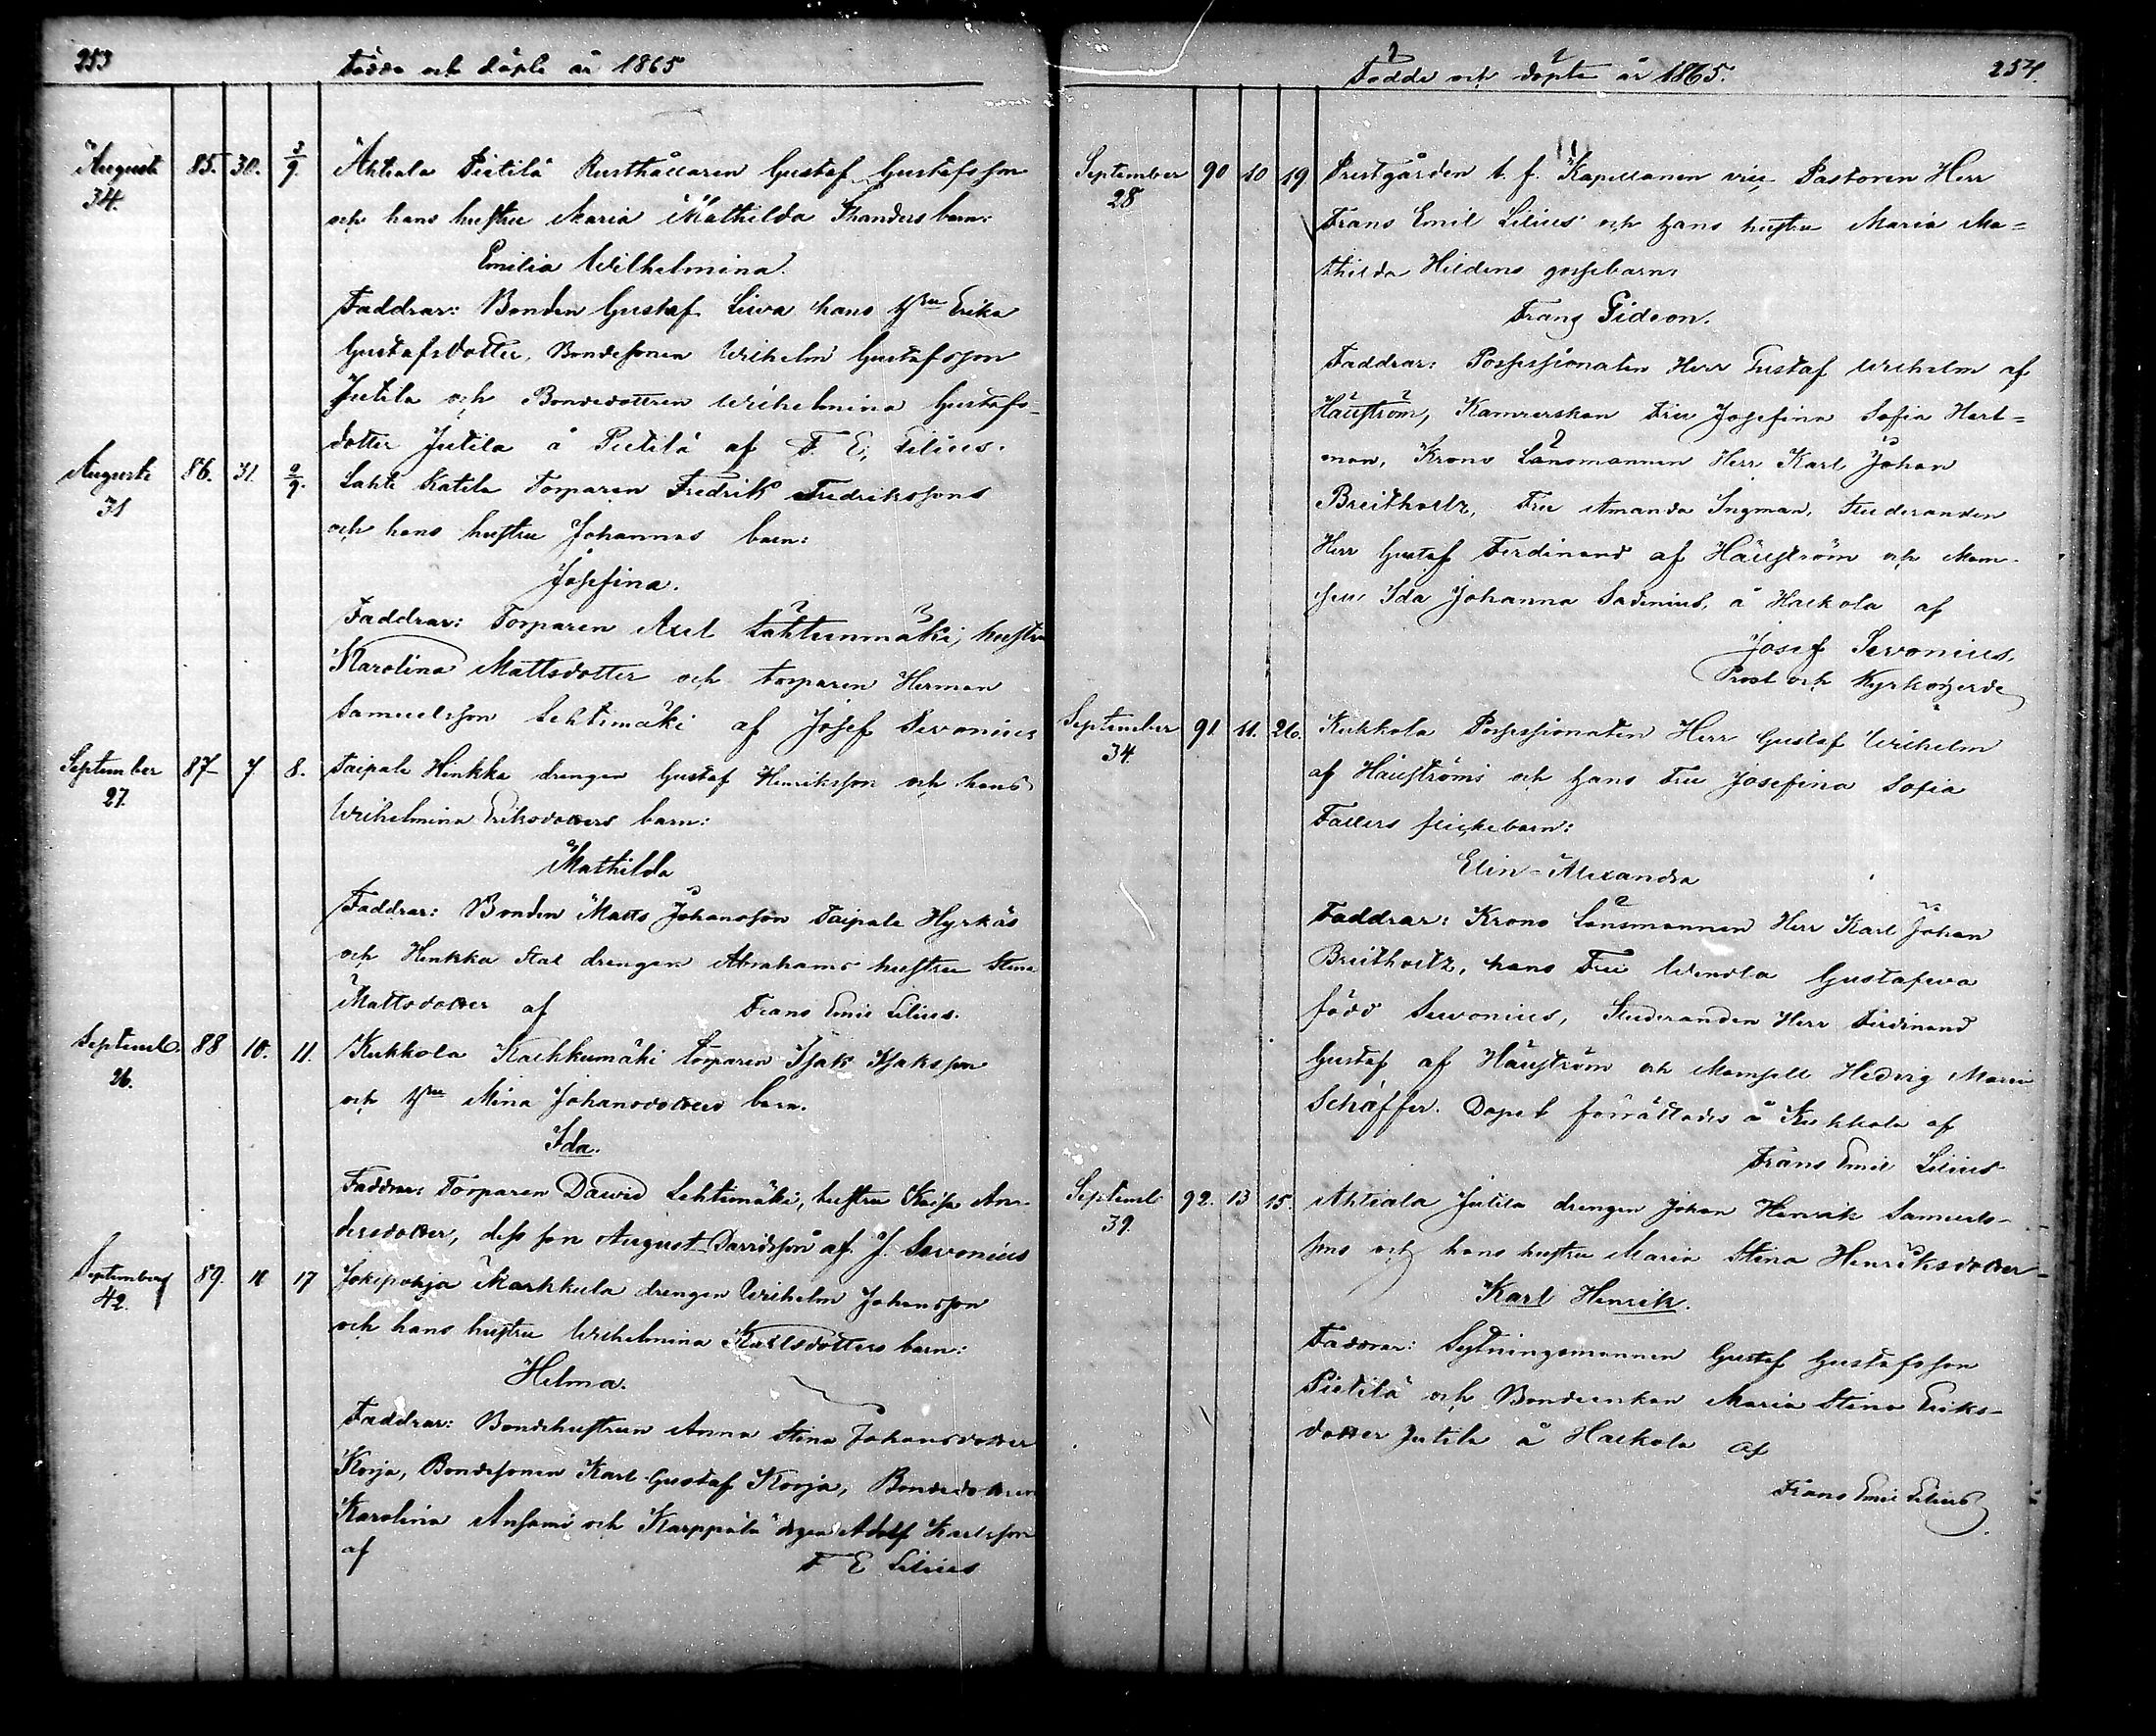 253
Födde och döpte år 1865
Augusti 85. 30. 3/9. Ahtiala Pietilä Rusthållaren Gustaf Gustafsson
34. och hans hustru Maria Mathilda Thanders barn:
Emilia Wilhelmina.
Faddrar: Bonden Gustaf Liwa hans Hru Erika
Gustafsdotter, Bondesonen Wilhelm Gustafsson
Jutila och Bondedottren Wilhelmina Gustafs-
dotter Jutila å Pietilä af F. E. Lilius.
Augusti 86. 31. 2/9. Lahti Katila Torparen Fredrik Fredrikssons
31 och hans hustru Johannas barn:
Josefina.
Faddrar: Torparen Axel Lähteenmäki, hustru
Karolina Mattsdotter och torparen Herman
Samuelsson Lehtimäki af Josef Sevonius
September 87 7 8. Taipale Hinkka drengen Gustaf Henriksson och hans
27. Wilhelmina Eriksdotters barn:
Mathilda
Faddrar: Bonden Matts Johansson Taipale Hyrkäs
och Hinkka drengen Abrahams hustru Stina
Mattsdotter af Frans Emil Lilius.
Septemb. 88 10. 11. Kukkola Kaukkumäki torparen Isak Isaksson
26. och Hru Mina Johansdotters barn.
Ida.
Faddrar: Torparen Dawid Lehtimäki, hustru Kaisa An-
dersdotter, dess son August Davidsson af J. Sevonius
September 89. 11 17 Jokipohja Markkula drengen Wilhelm Johansson
42. och hans hustru Wilhelmina Karlsdotters barn:
Helma.
Faddrar: Bondehustrun Anna Stina Johansdotter
Korja, Bondesonen Karl Gustaf Korja, Bondedottren
Karolina Ansami och Karppala drgen Adolf Karlsson
af F E Lilius
Födde och döpte år 1865. 254.
September 90 10 19 Prestgården t. f. Kapellanen vice Pastoren Herr
28 Frans Emil Lilius och hans hustru Maria Ma=
thilda Hildens gossebarn:
Frans Gideon.
Faddrar: Possessionaten Herr Gustaf Wilhelm af
Hällström, Kamrerskan Fru Josefina Sofia Hart=
man, Krono Länsmannen Herr Karl Johan
Breitholtz, Fru Amanda Ingman, Studeranden
Herr Gustaf Ferdinand af Hällström och Mam-
sell Ida Johanna Sadenius, å Haekola af
Josef Sevonius,
Prost och Kyrkoherde
September 91. 11. 26. Kukkola Possessionaten Herr Gustaf Wilhelm
34. af Hällströms och hans Fru Josefina Sofia
Fallers flickebarn:
Elin Alexandra
Faddrar: Krono Länsmannen Herr Karl Johan
Breitholtz, hans Fru Wendla Gustafwa
född Sevonius, Studeranden Herr Ferdinand
Gustaf af Hällström och Mamsell Hedvig Maria
Schäffer. Dopet förrättades å Kukkola af
Frans Emil Lilius
Septemb 92. 13 15. Ahtiala Jutila drengen Johan Henrik Samuels-
39. sons och hans hustru Maria Stina Henriksdotter
Karl Henrik.
Faddrar: Sytningsmannen Gustaf Gustafsson
Pietilä och Bondeenkan Maria Stina Eriks-
dotter Jutila å Haekola af
Frans Emil Lilius